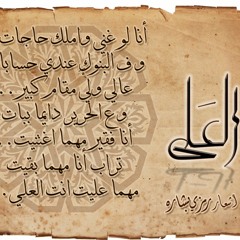 أنا لو غني واملك حاجات
وف البنوك عندي حسابات
عالي ولي مقام كبير..
وع الحرير دايما ببات
أنا فقير مهما اغتنيت..
تراب انا مهما بقيت
مهما عليت انت العلي.
العلى
اشعار رمزي بشاره